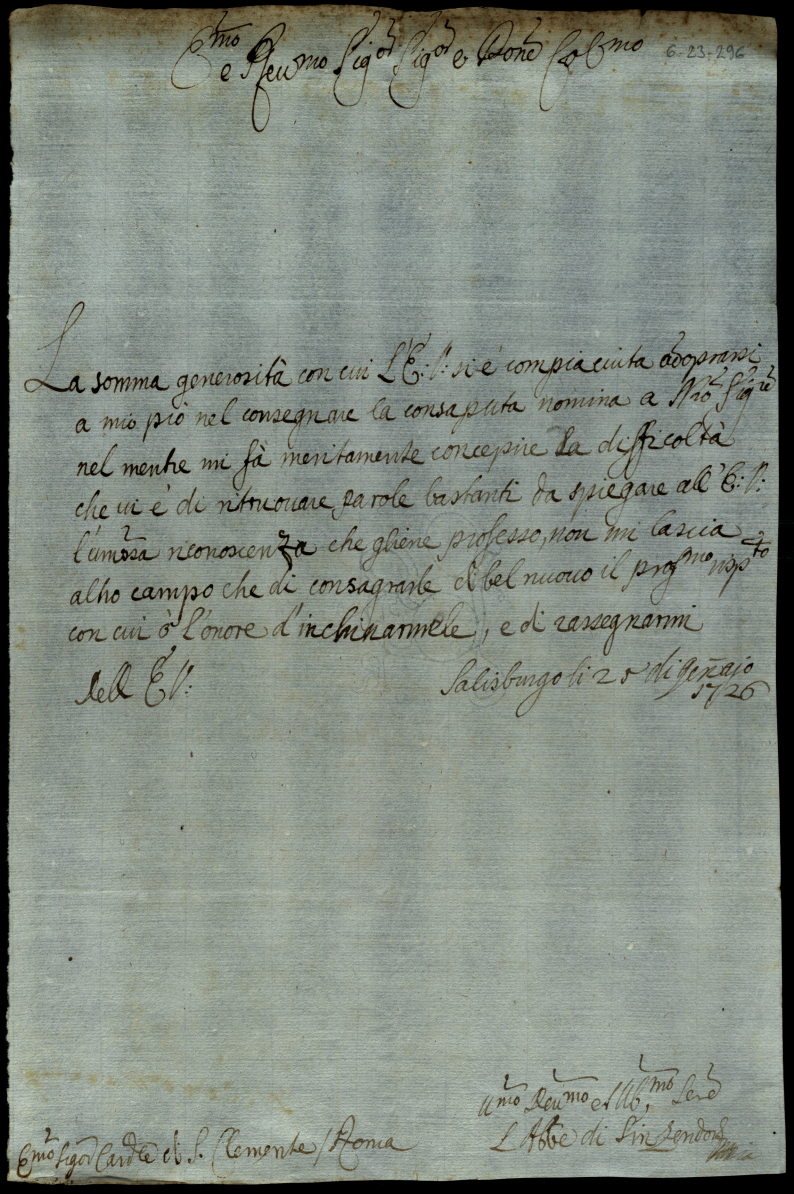 E.mo e Reu.mo Sig.or Sig.or e Pone Col.mo
6-23-296
La somma generosità con cui L'E: V: si é compiaciuta adoprarsi
a mio prò nel consegnare la consaputa nomina a Nro Sig.re
nel mentre mi fà meritamente concepire la difficoltà
che vi é di ritruouare parole bastanti da spiegare all' E: V:
l'umssa riconoscenza che gliene professo, non mi lascia
altro campo che di consagrarle di bel nuouo il prof.mo risp.to
con cui ò l'onore d'inchinarmele, e di rassegnarmi
dell' E V:
Salisburgo li 25 di Genajo
1726
U.mo Deu.mo ed Ob.mo Sere
L'Abbe di Sinzendorf
Emo Sigor Cardle di S. Clemente / Roma